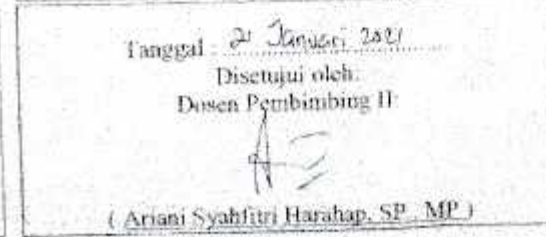 Tanggal : 21 Januari 2021
Disetujui oleh:
Dosen Pembimbing II:
( Ariani Syahfitri Harahap, SP., MP )